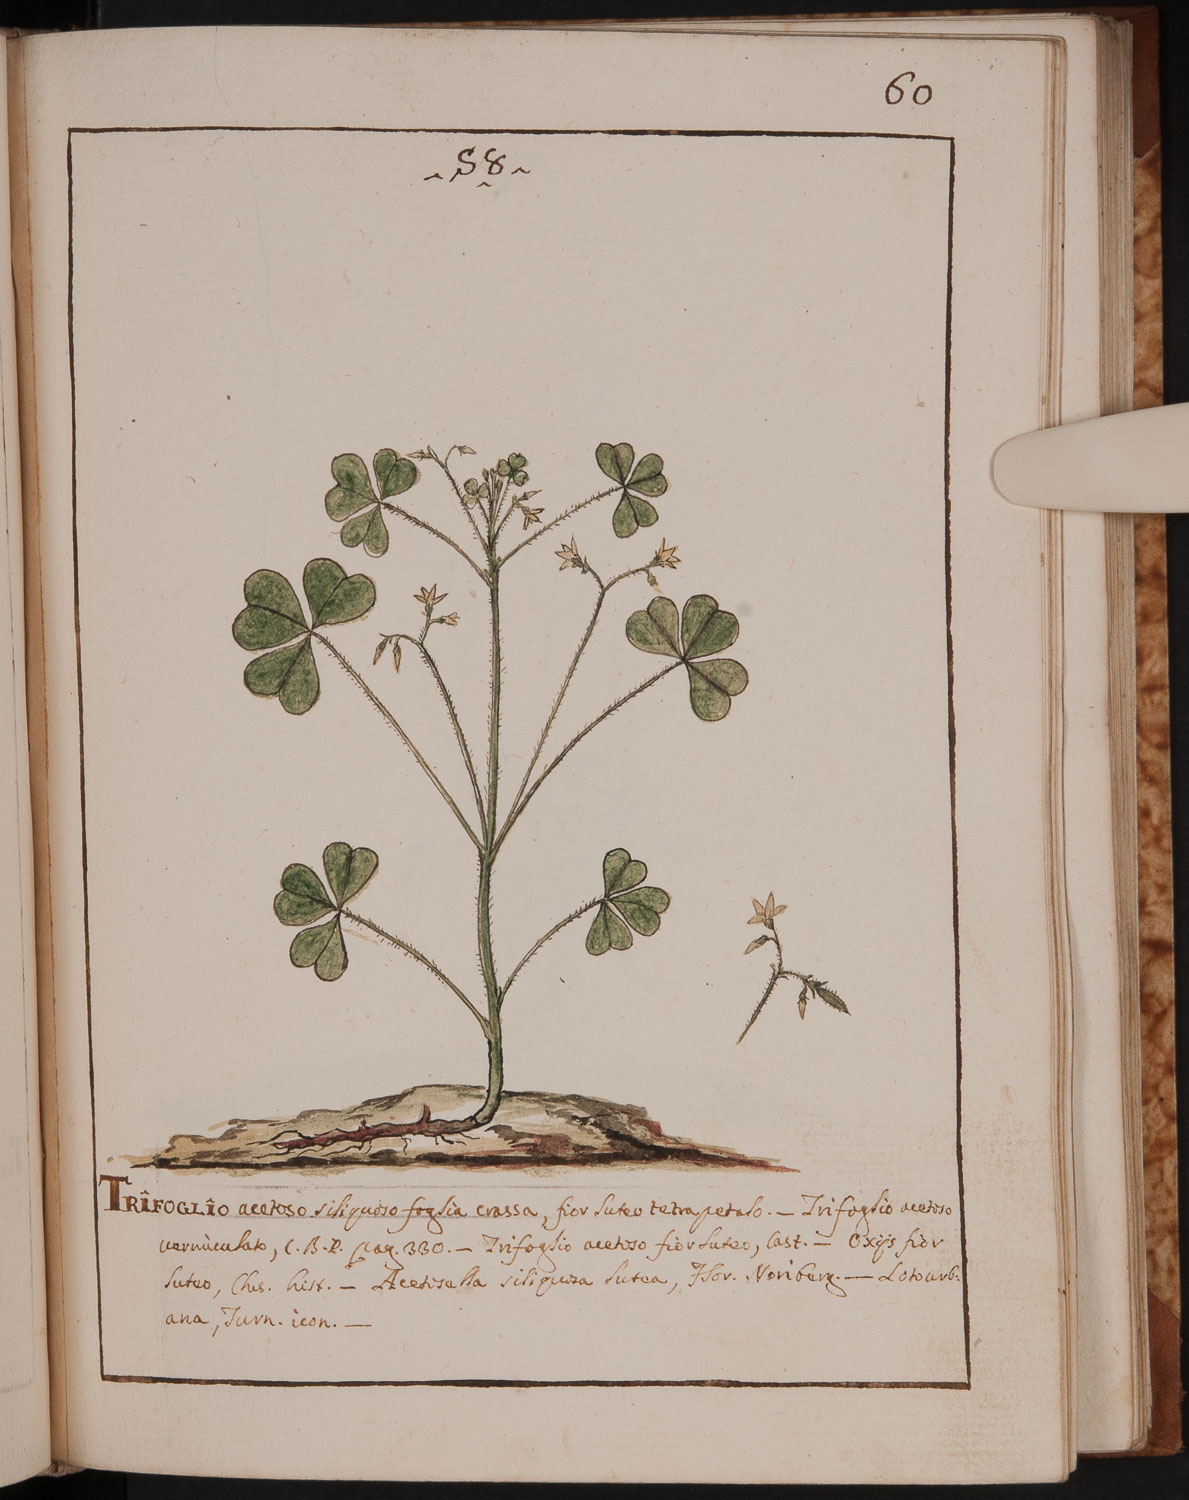 60
58
TRÎFOGLÎO acetoso siliquoso foglia crassa, fior luteo tetrapetalo. — Trifoglio acetoso
corniculato, C. B. P. pag. 330. — Trifoglio acetoso fior luteo, Cast. — Oxijs fior
luteo, Clus. hist. — Acetosella siliquosa lutea, Flor. Noriberg. — Loto urb-
ana, Turn. icon. —